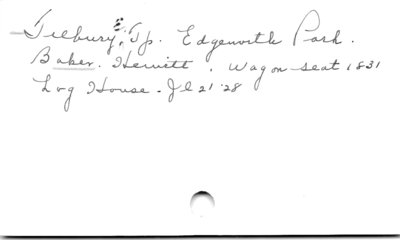 Tilbury, Tp. Edgeworth Park.
Baker. Hewitt. Wagon seat 1831
Log House - Jl 21 '28